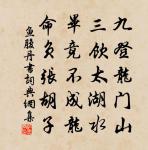 九登龍門山
三飲太湖水
畢竟不成龍
命負張胡子
魚腹丹書詞典網集